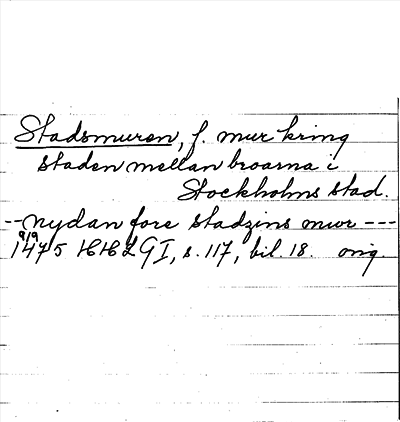 Stadsmuren, f. mur kring
staden mellan broarna i
Stockholms stad.
-- nydan fore stadzins mwr ---
9/9
1475 HHLG I, s. 117, bil. 18. orig.